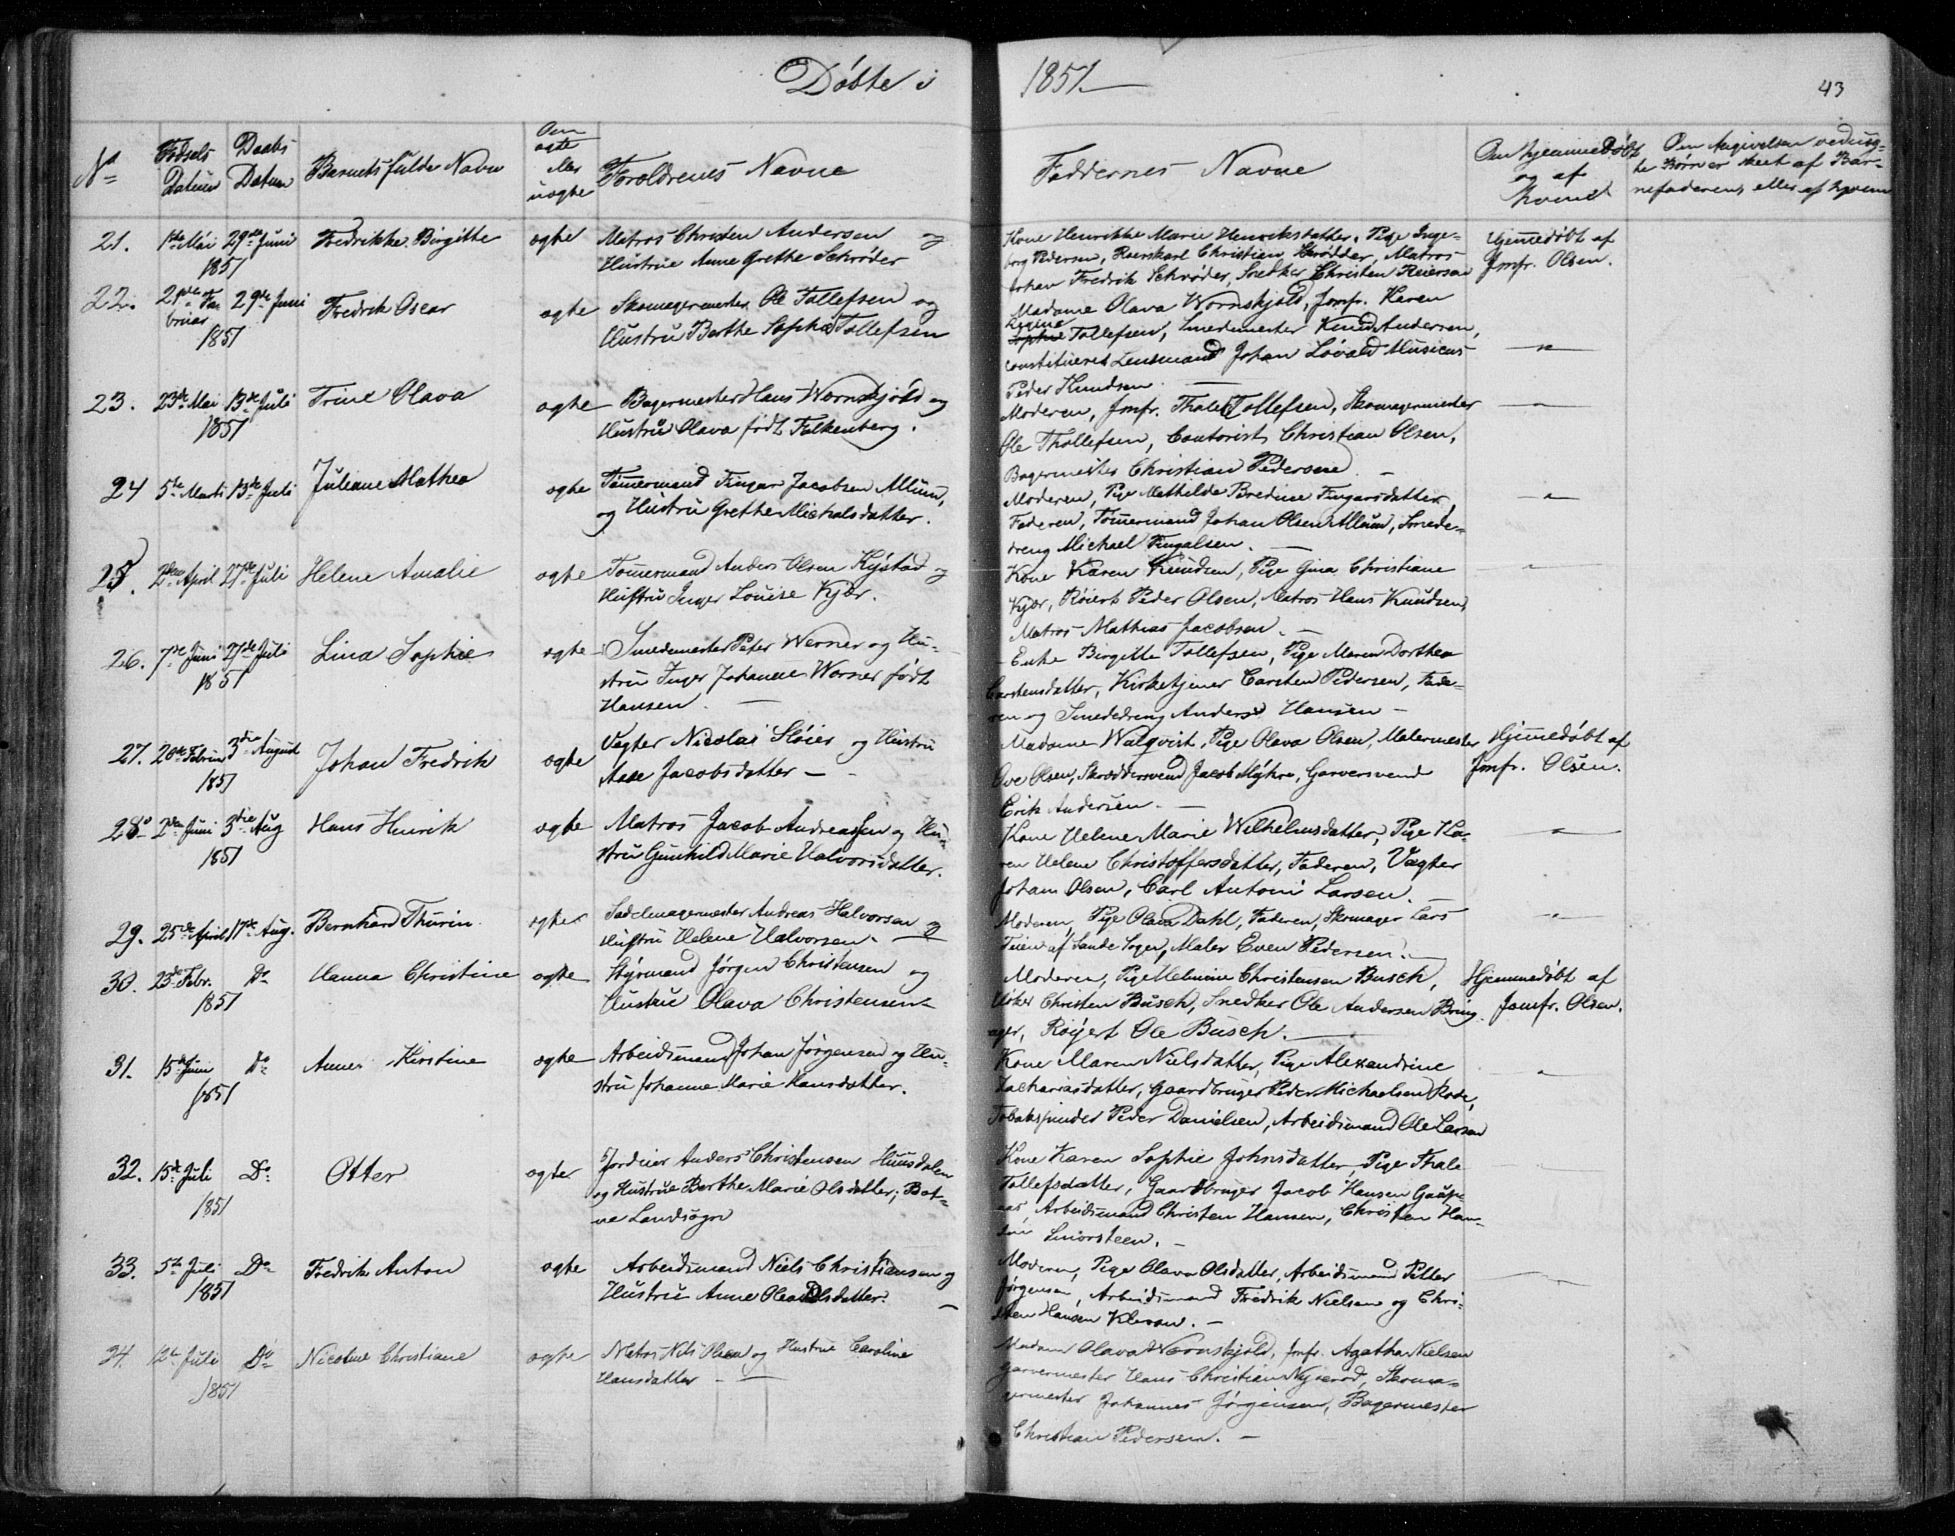 Døbte i 1851.
43
No
Fødsels Datum
Daabs Datum
Barnets fulde Navn
Om ægte eller uægte
Forældrenes Navne
Faddernes Navne
Om hjemmedøbt og af hvem
Om Angivelsen veduægte Børn er skeet af Barnefaderen, eller af hvem
21. 1ste Mai 1851 29de Juni Fredrikke Birgitte ægte
Matros Christen Andersen og
Hustrue Anne Grethe Schrøder
Kone Henrikke Marie Henriksdatter, Pige Inge-
borg Pedersen, Christian Matros
Johan Fredrik Schrøder, Snedker Christen Reiersen
Hjemedøbt af
Jmfr. Olsen.
22. 21de Februar 1851 29de Juni Fredrik Oscar ægte
Skomagermester Ole Tollefsen og
Hustru Berthe Sophie Tollefsen
Madame Olava Wornskjold, Jomfr. Karen
Regine
Sophie Tollefsen, Smedemester Knud Andersen,
constitueret Lensmand Johan Løvald Musicus
Peder Knudsen. —
— " —
23. 23de Mai 1851 13de Juli Trine Olava ægte
Bagermester Hans Wornskjold og
Hustru Olava født Falkenberg.
Moderen, Jmfr. Thale Tollefsen, Skomagermester
Ole Thollefsen, Contorist Christian Olsen,
Bagermester Christian Pedersen. —
— " —
24 5te Marti 13de Juli Juliane Mathea ægte
Tømermand Fingar Jacobsen Allum,
og Hustru Grethe Michalsdatter.
Moderen, Pige Mathilde Bredine Fingarsdatter,
Faderen, Tømermand Johan Olsen Allum, Smede-
dreng Michael Fingalsen. —
— " —
25. 2den April 27de Juli Helene Amalie ægte
Tømermand Anders Olsen Kjøstad og
Hustru Inger Louise Kjær.
Kone Karen Knudsen, Pige Gina Christiane
Kjær, Røiert Peder Olsen, Matros Hans Knudsen,
Matros Mathias Jacobsen. —
— " —
26. 7de Juni 1851 27de Juli Lina Sophie ægte
Smedemester Peter Werner og Hu-
stru Inger Johanne Werner født
Hansen. —
— Enke Birgitte Tollefsen, Pige Maren Dorthea
Carstensdatter, Kirketjener Carsten Pedersen, Fade-
ren og Smededreng Anders Hansen —
27. 20de Februar 1851 3die August Johan Fredrik ægte
Vegter Nicolai Sløier og Hustru
Aase Jacobsdatter —
Madame Walqvist, Pige Olava Olsen, Malermester
Ove Olsen, Skræddersvend Jacob Myhre, Garversvend
Erik Andersen. —
Hjemedøbt af
Jmfr. Olsen.
28. 2den Juni 1851 3die Aug Hans Henrik ægte
Matros Jacob Andreassen og Hu-
stru Gunhild Marie Halvorsdatter.
Kone Helene Marie Wilhelmsdatter, Pige Ka-
ren Helene Christoffersdatter, Faderen, Vægter
Johan Olsen, Carl Antoni Larsen. —
— " —
29. 25de April 17de Aug. Bernhard Thurin ægte
Sadelmagermester Andreas Halvorsen og
Hustru Helene Halvorsen. —
Moderen, Pige Olava Dahl, Faderen, Skomager Lars
Teien af Sande Sogn, Maler Even Pedersen. —
— " —
30. 23de Febr. 1851 Do Hanna Christine ægte
Styrmand Jørgen Christensen og
Hustru Olava Christensen
Moderen, Pige Helmine Christensen Busch,
Høker Christen Busch, Snedker Ole Andersen Bring-
ager, Røyert Ole Busch. —
Hjemmedøbt af
Jomfr. Olsen.
31. 15de Juni 1851 Do Anne Kirstine ægte
Arbeidsmand Johan Jørgensen og Hu-
stru Johanne Marie Hansdatter.
Kone Maren Nielsdatter, Pige Alexandrine
Zachariasdatter, Gaardbruger Peder Michaelsen Rode,
Tobakspinder Peder Danielsen, Arbeidsmand Ole Larsen
— " —
32. 15de Juli 1851 Do Otter ægte
Jordeier Anders Christensen Huusdalen
og Hustrue Berthe Marie Olsdatter, Bot-
ne Landsogn
Kone Karen Sophie Johnsdatter, Pige Thale
Tollefsdatter, Gaardbruger Jacob Hansen Gaap-
aas Arbeidsmand Christen Hansen, Christen Han-
sen Smørsteen. —
33. 5te Juli 1851 Do Fredrik Anton ægte
Arbeidsmand Niels Christiansen og
Hustrue Anne Olea Olsdatter. —
Moderen, Pige Olava Olsdatter, Arbeidsmand Petter
Jørgensen, Arbeidsmand Fredrik Nielsen og Chri-
sten Hansen Klevan. —
34. 12te Juli 1851 Do Nicoline Christiane ægte
Matros Nils Olsen og Hustrue Caroline
Hansdatter —
Madam Olava Wornskjold, Jmfr. Agatha Nielsen
Garvermester Hans Christian Nyserød, Skoma-
germester Johannes Jørgensen, Bagermester
Christian Pedersen. —